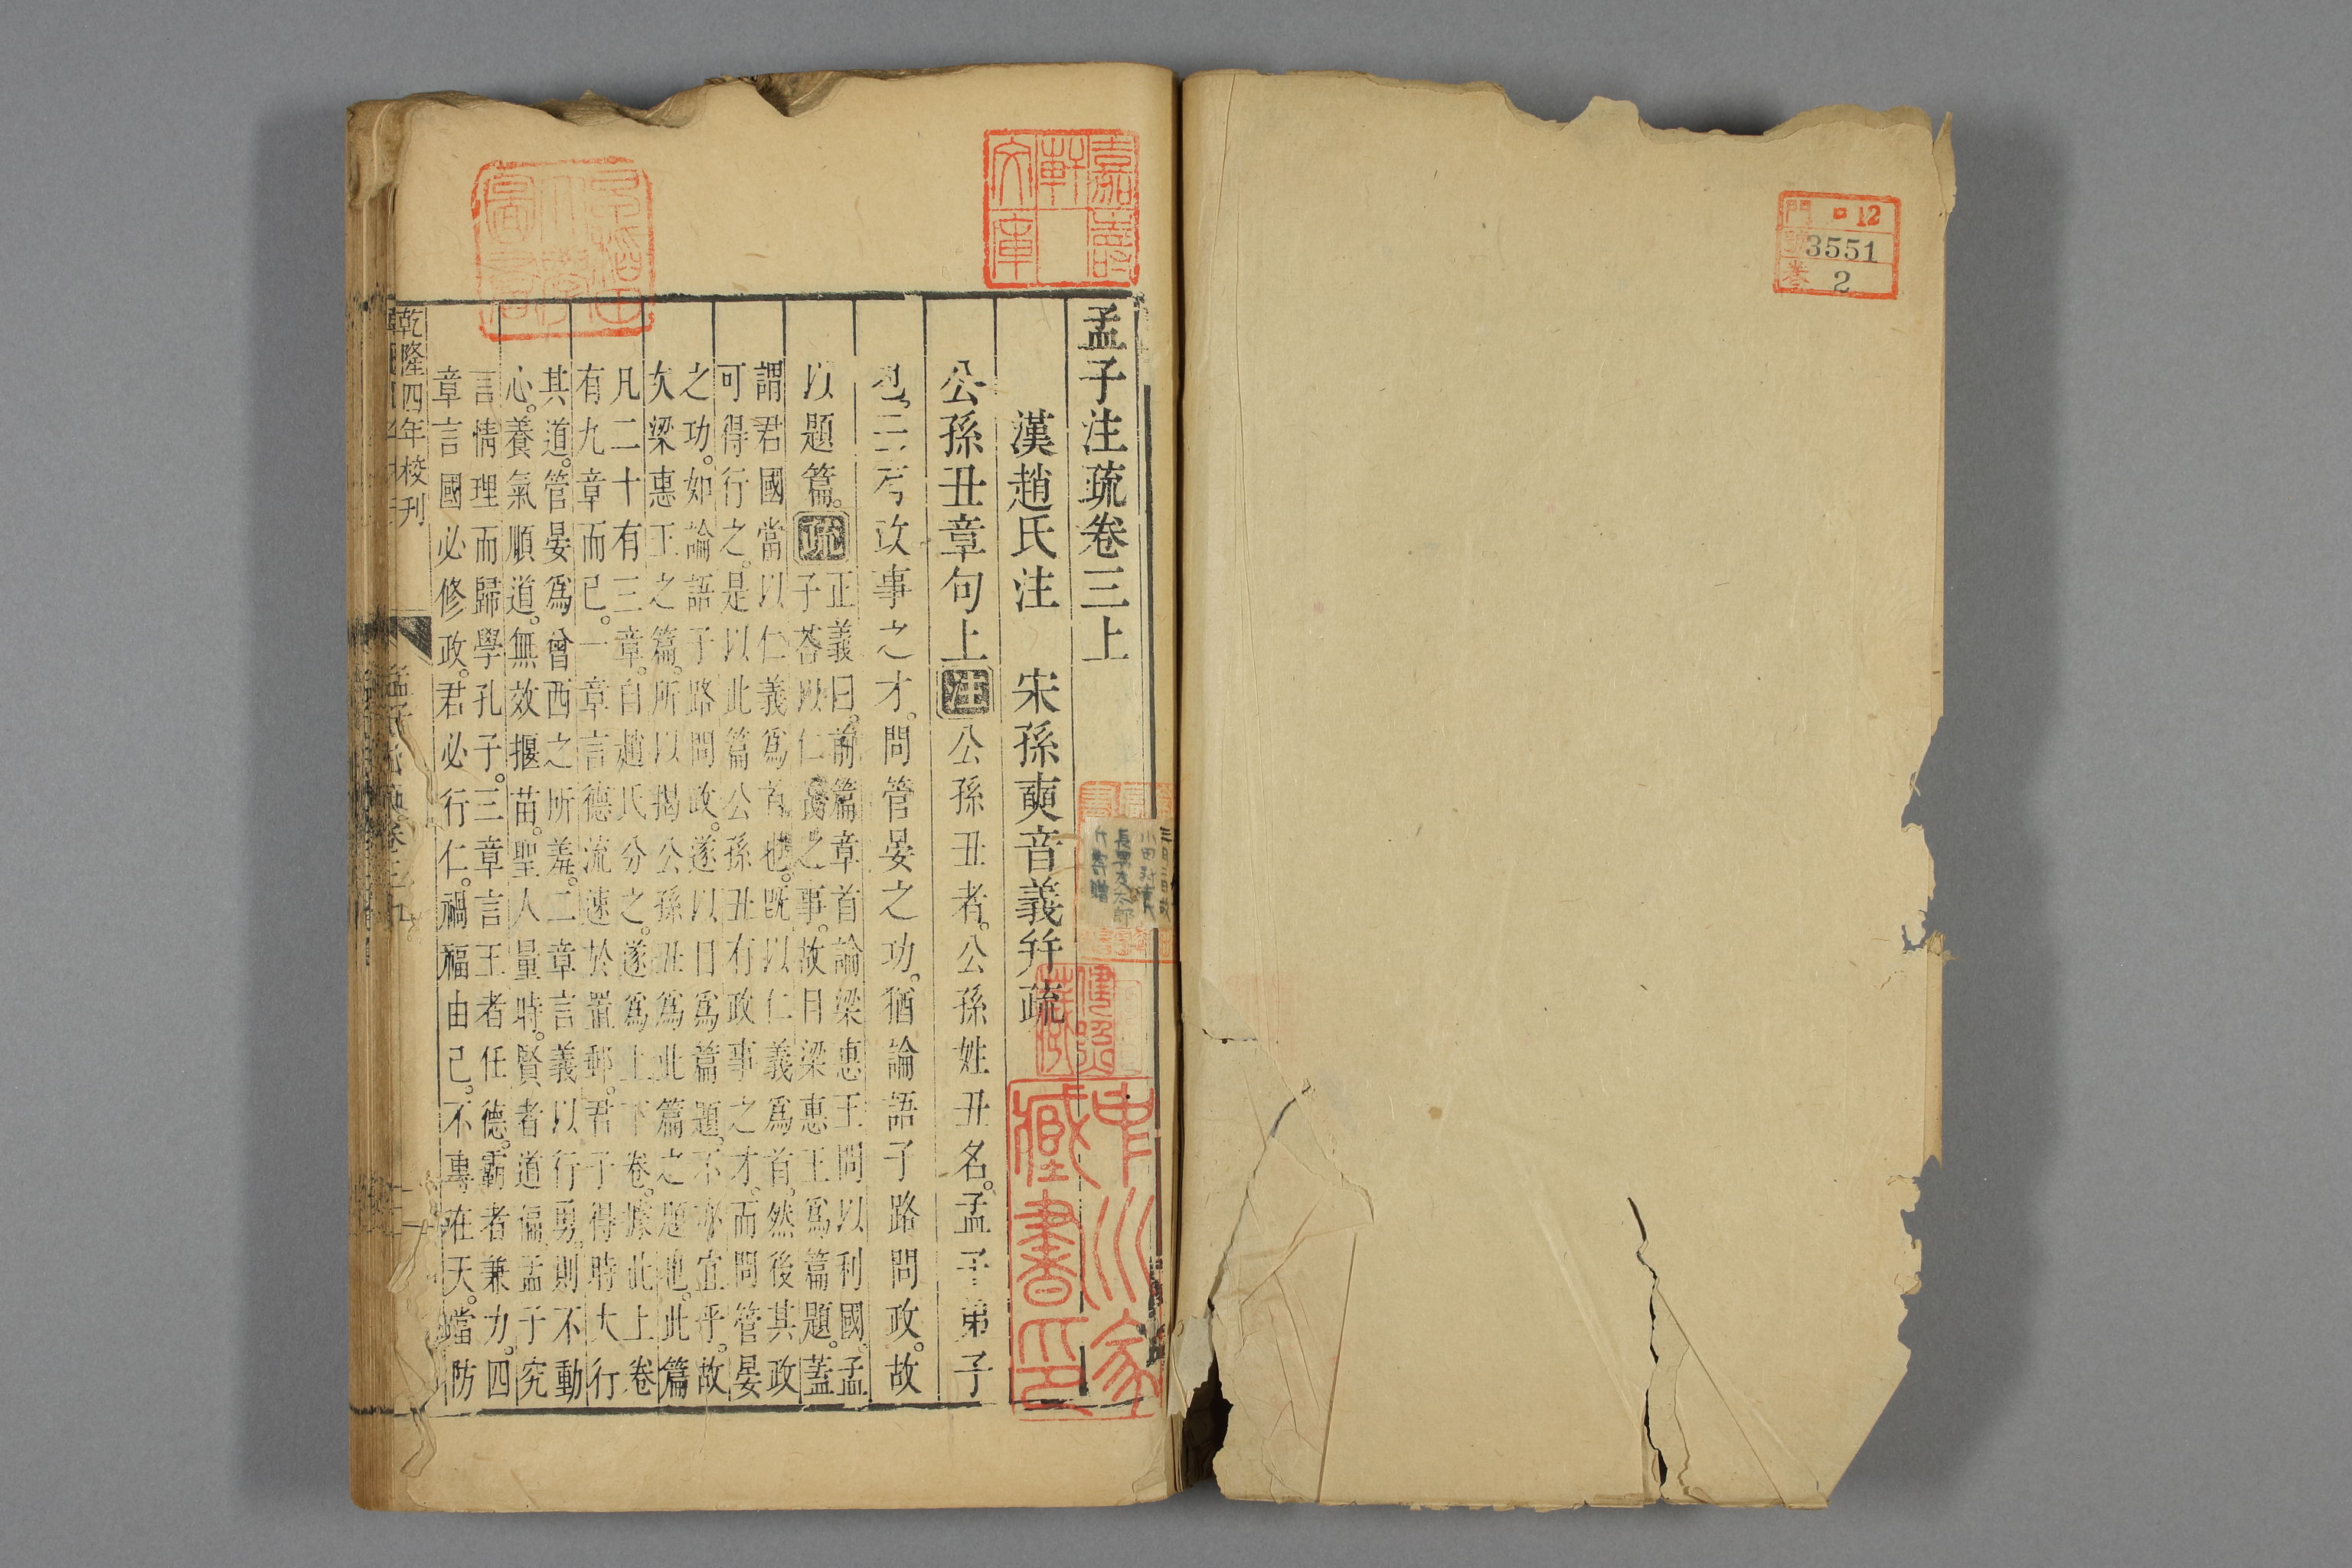 門 ロ 12
號 3551
卷 2
嘉壽軒文庫
早稲田大學圖書
孟子注疏卷三上
漢趙氏注 宋孫奭音義幷疏
公孫丑章句上注公孫丑者。公孫姓丑名。孟子弟子
也。有政事之才。問管晏之功。猶論語子路問政。故
以題篇。疏正義曰。前篇章首論梁惠王問以利國。孟
子荅以仁義之事。故曰梁惠王爲篇題。蓋
謂君國當以仁義爲首也。旣以仁義爲首。然後其政
可得行之。是以此篇公孫丑有政事之才。而問管晏
之功。如論語子路問政。遂以目爲篇題。不亦宜乎。故
次梁惠王之篇。所以揭公孫丑爲此篇之題也。此篇
凡二十有三章。自趙氏分之。遂爲上下卷。據此上卷
有九章而已。一章言德流速於置郵。君子得時大行
其道。管晏爲曾西之所羞。二章言義以行勇。則不動
心。養氣順道。無效揠苗。聖人量時。賢者道偪。孟子究
言情理而歸學孔子。三章言王者任德。霸者兼力。四
章言國必修政。君必行仁。禍福由己。不專在天。當防
乾隆四年校刊
申川家藏書印